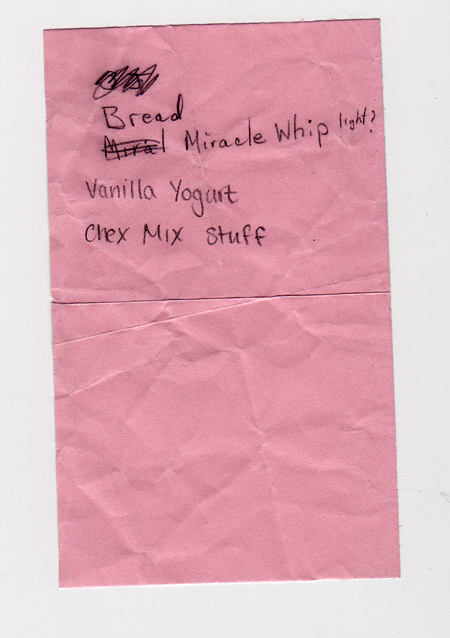 Bread
Miracle Whip light?
Vanilla Yogurt
Chex Mix Stuff